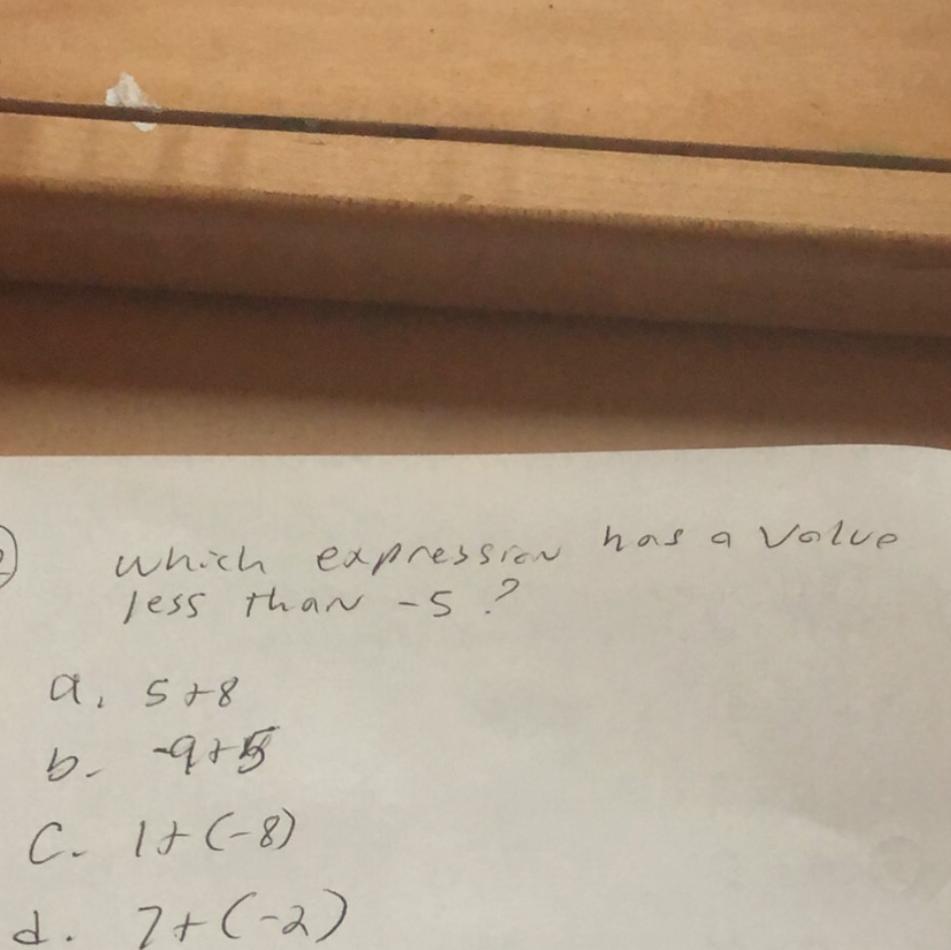 which expression has a value
less than -5?
a. 5+8
b. -9+5
c. 1+(-8)
d. 7+(-2)